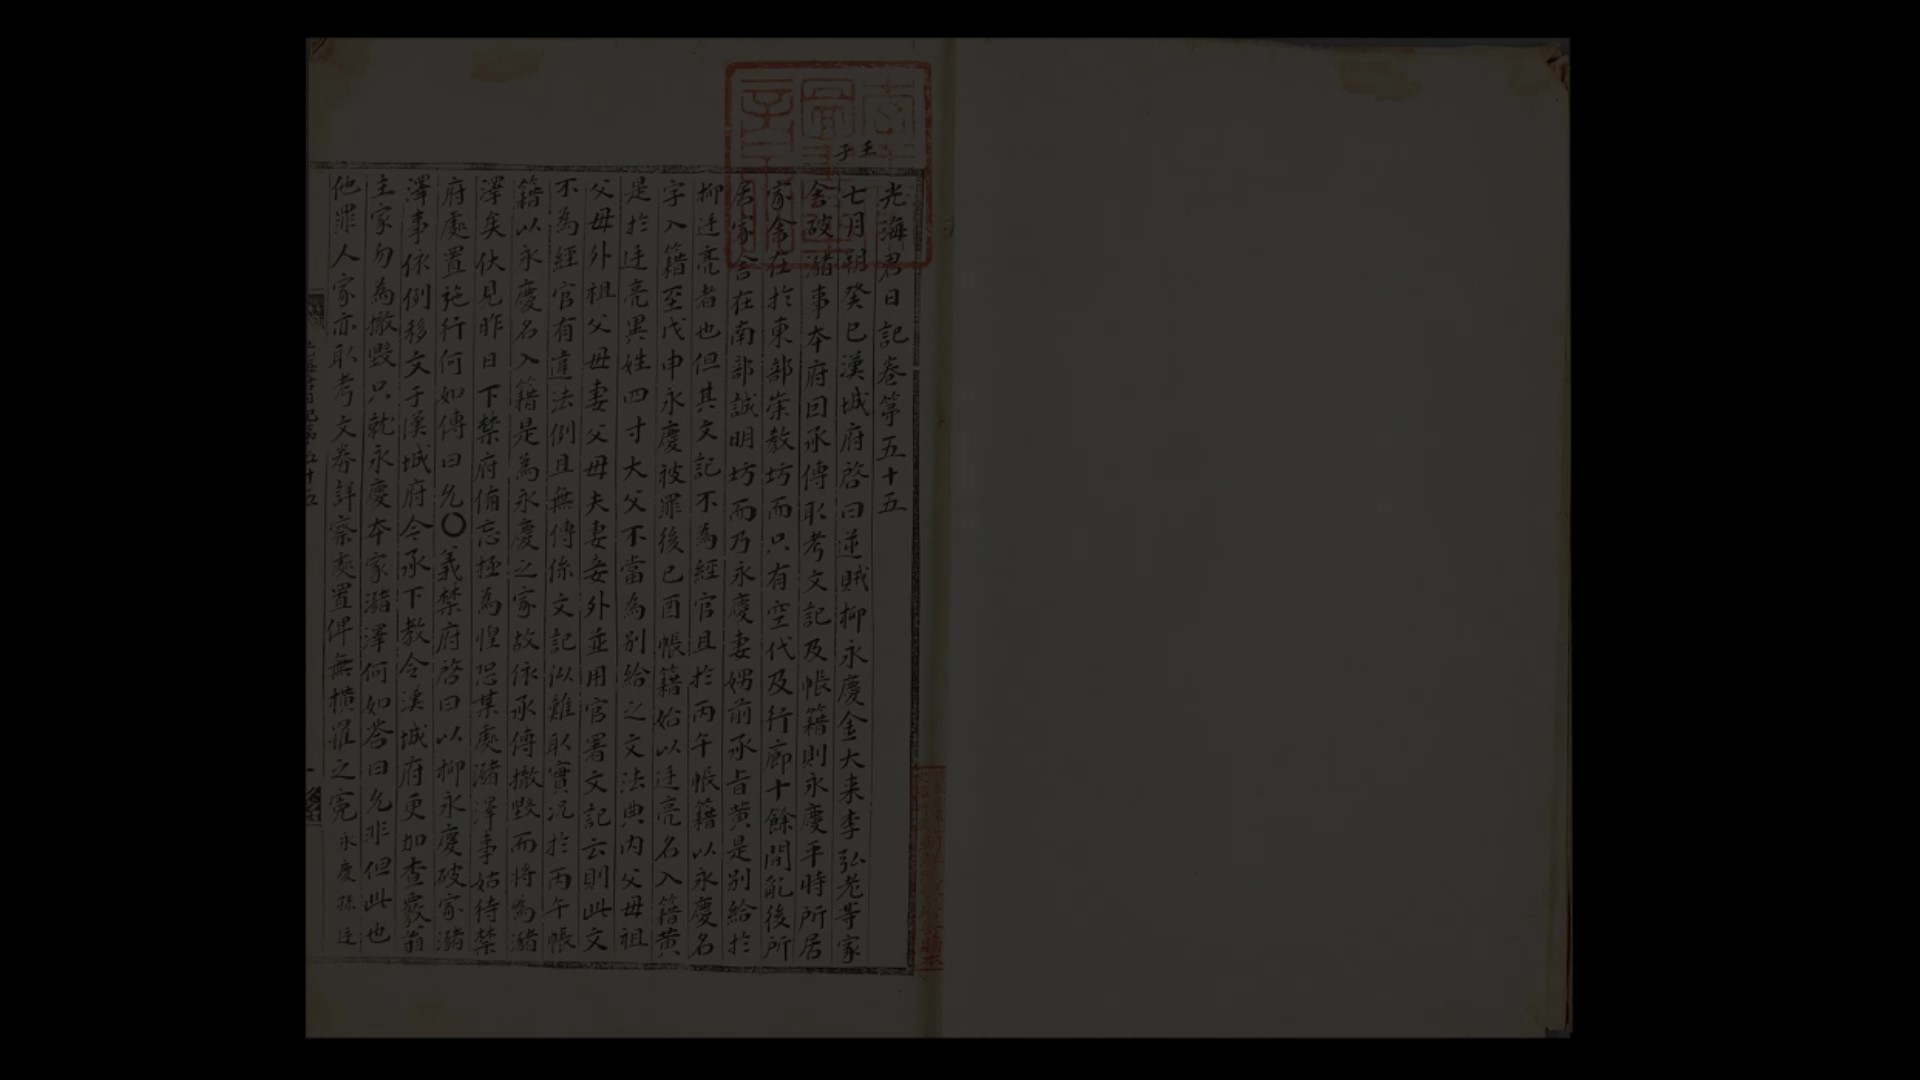 壬子
光海君日記卷第五十五
七月朔癸巳漢城府啓曰逆賊柳永慶金大来李弘老等家
舍破瀦事本府回承傳取考文記及帳籍則永慶平時所居
家舍在於東部崇教坊而只有空代及行廊十餘間乱後所
居家舍在南部誠明坊而乃永慶妻娚前承旨黄是別給於
柳廷亮者也但其文記不為經官且於丙午帳籍以永慶名
字入籍至戊申永慶被罪後己酉帳籍始以廷亮名入籍黄
是於廷亮異姓四寸大父不當為別給之文法典內父母祖
父母外祖父母妻父母夫妻妾外並用官署文記云則此文
不為經官有違法例且無傳係文記似難取實况於丙午帳
籍以永慶名入籍是為永慶之家故依承傳撤毀而將為瀦
澤矣伏見昨日下禁府備忘極為惶恐某處瀦澤事姑待禁
府處置施行何如傳曰允〇義禁府啓曰以柳永慶破家瀦
澤事依例移文于漢城府今承下教令漢城府更加查覈翁
主家勿為撤毀只就永慶本家瀦澤何如答曰允非但此也
他罪人家亦取考文券詳察處置俾無橫罹之寃永慶孫廷